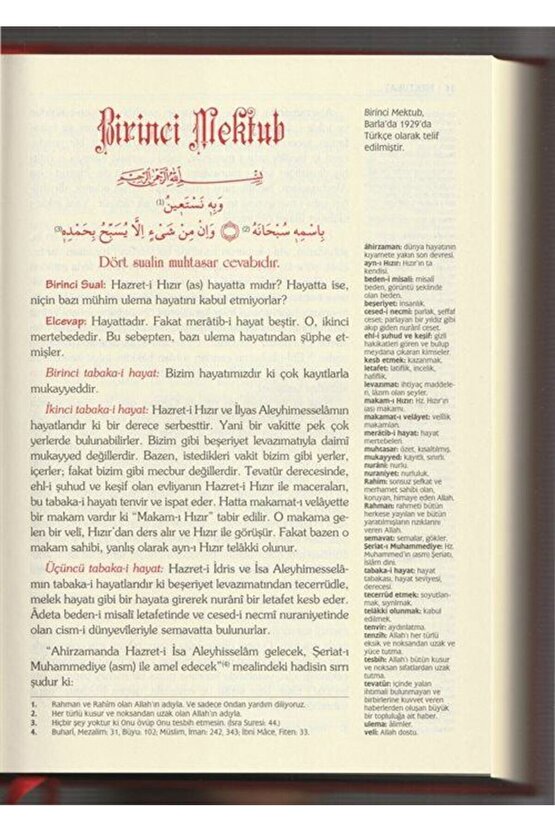 Birinci Mektub
بِسْمِ اللّٰهِ الرَّحْمٰنِ الرَّحِيمِ
وَبِهِ نَسْتَعِينُ (1)
بِاسْمِهِ سُبْحَانَهُ (2) وَاِنْ مِنْ شَيْءٍ اِلَّا يُسَبِّحُ بِحَمْدِهِ (3)
Dört sualin muhtasar cevabıdır.
Birinci Sual: Hazret-i Hızır (as) hayatta mıdır? Hayatta ise,
niçin bazı mühim ulema hayatını kabul etmiyorlar?
Elcevap: Hayattadır. Fakat merâtib-i hayat beştir. O, ikinci
mertebededir. Bu sebepten, bazı ulema hayatından şüphe et-
mişler.
Birinci tabaka-i hayat: Bizim hayatımızdır ki çok kayıtlarla
mukayyeddir.
İkinci tabaka-i hayat: Hazret-i Hızır ve İlyas Aleyhimesselâmın
hayatlarıdır ki bir derece serbesttir. Yani bir vakitte pek çok
yerlerde bulunabilirler. Bizim gibi beşeriyet levazımatıyla daimî
mukayyed değillerdir. Bazen, istedikleri vakit bizim gibi yerler,
içerler; fakat bizim gibi mecbur değillerdir. Tevatür derecesinde,
ehl-i şuhud ve keşif olan evliyanın Hazret-i Hızır ile maceraları,
bu tabaka-i hayatı tenvir ve ispat eder. Hatta makamat-ı velâyette
bir makam vardır ki "Makam-ı Hızır" tabir edilir. O makama ge-
len bir velî, Hızır'dan ders alır ve Hızır ile görüşür. Fakat bazen o
makam sahibi, yanlış olarak ayn-ı Hızır telâkki olunur.
Üçüncü tabaka-i hayat: Hazret-i İdris ve İsa Aleyhimesselâ-
mın tabaka-i hayatlarıdır ki beşeriyet levazımatından tecerrüdle,
melek hayatı gibi bir hayata girerek nuranî bir letafet kesb eder.
Âdeta beden-i misalî letafetinde ve cesed-i necmî nuraniyetinde
olan cism-i dünyevîleriyle semavatta bulunurlar.
"Ahirzamanda Hazret-i İsa Aleyhisselâm gelecek, Şeriat-ı
Muhammediye (asm) ile amel edecek"(4) mealindeki hadisin sırrı
şudur ki:
1. Rahman ve Rahîm olan Allah'ın adıyla. Ve sadece Ondan yardım diliyoruz.
2. Her türlü kusur ve noksandan uzak olan Allah'ın adıyla.
3. Hiçbir şey yoktur ki Onu övüp Onu tesbih etmesin. (İsra Suresi: 44.)
4. Buharî, Mezalim: 31, Büyu: 102; Müslim, İman: 242, 343; İbni Mâce, Fiten: 33.
Birinci Mektub,
Barla'da 1929'da
Türkçe olarak telif
edilmiştir.
âhirzaman: dünya hayatının
kıyamete yakın son devresi.
ayn-ı Hızır: Hızır'ın ta
kendisi.
beden-i misalî: misalî
beden, görüntü şeklinde
olan beden.
beşeriyet: insanlık.
cesed-i necmî: parlak, şeffaf
ceset; parlayan bir yıldız gibi
akıp giden nuranî ceset.
ehl-i şuhud ve keşif: gizli
hakikatleri gören ve bulup
meydana çıkaran kimseler.
kesb etmek: kazanmak.
letafet: latiflik, incelik,
hafiflik.
levazımat: ihtiyaç maddele-
ri, lâzım olan şeyler.
makam-ı Hızır: Hz. Hızır'ın
(as) makamı.
makamat-ı velâyet: velîlik
makamları.
merâtib-i hayat: hayat
mertebeleri.
muhtasar: özet, kısaltılmış.
mukayyed: kayıtlı, sınırlı.
nurânî: nurlu.
nuraniyet: nurluluk.
Rahîm: sonsuz şefkat ve
merhamet sahibi olan,
koruyan, himaye eden Allah.
Rahman: rahmeti bütün
herkese yayılan ve bütün
yaratılmışların rızıklarını
veren Allah.
semavat: semalar, gökler.
Şeriat-ı Muhammediye: Hz.
Muhammed'in (asm) Şeriatı,
İslâm dini.
tabaka-i hayat: hayat
tabakası, hayat seviyesi,
derecesi.
tecerrüd etmek: soyutlan-
mak, sıyrılmak.
telâkki olunmak: kabul
edilmek.
tenvir: aydınlatma.
tenzih: Allah'ı her türlü
eksik ve noksandan uzak ve
yüce tutma.
tesbih: Allah'ı bütün kusur
ve noksan sıfatlardan uzak
tutma.
tevatür: içinde yalan
ihtimali bulunmayan ve
birbirlerine kuvvet veren
haberlerden oluşan büyük
bir topluluğa ait haber.
ulema: âlimler.
velî: Allah dostu.